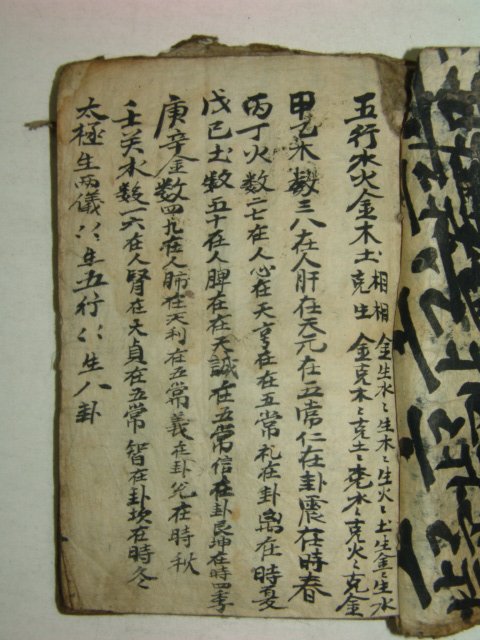 五行水火金木土 相生 金生水〻生木〻生火〻土生金〻生水
相克 金克木〻克土〻克水〻克火〻克金
甲乙木数三八在人肝在天元在五常仁在卦震在時春
丙丁火数二七在人心在天亨在在五常礼在卦离在時夏
戊己土数五十在人脾在在天誠在五常信在卦艮坤在時四季
庚辛金数四九在人肺在天利在五常義在卦兌在時秋
壬癸水数一六在人腎在天貞在五常智在卦坎在時冬
太極生兩儀〻〻生五行〻〻生八卦